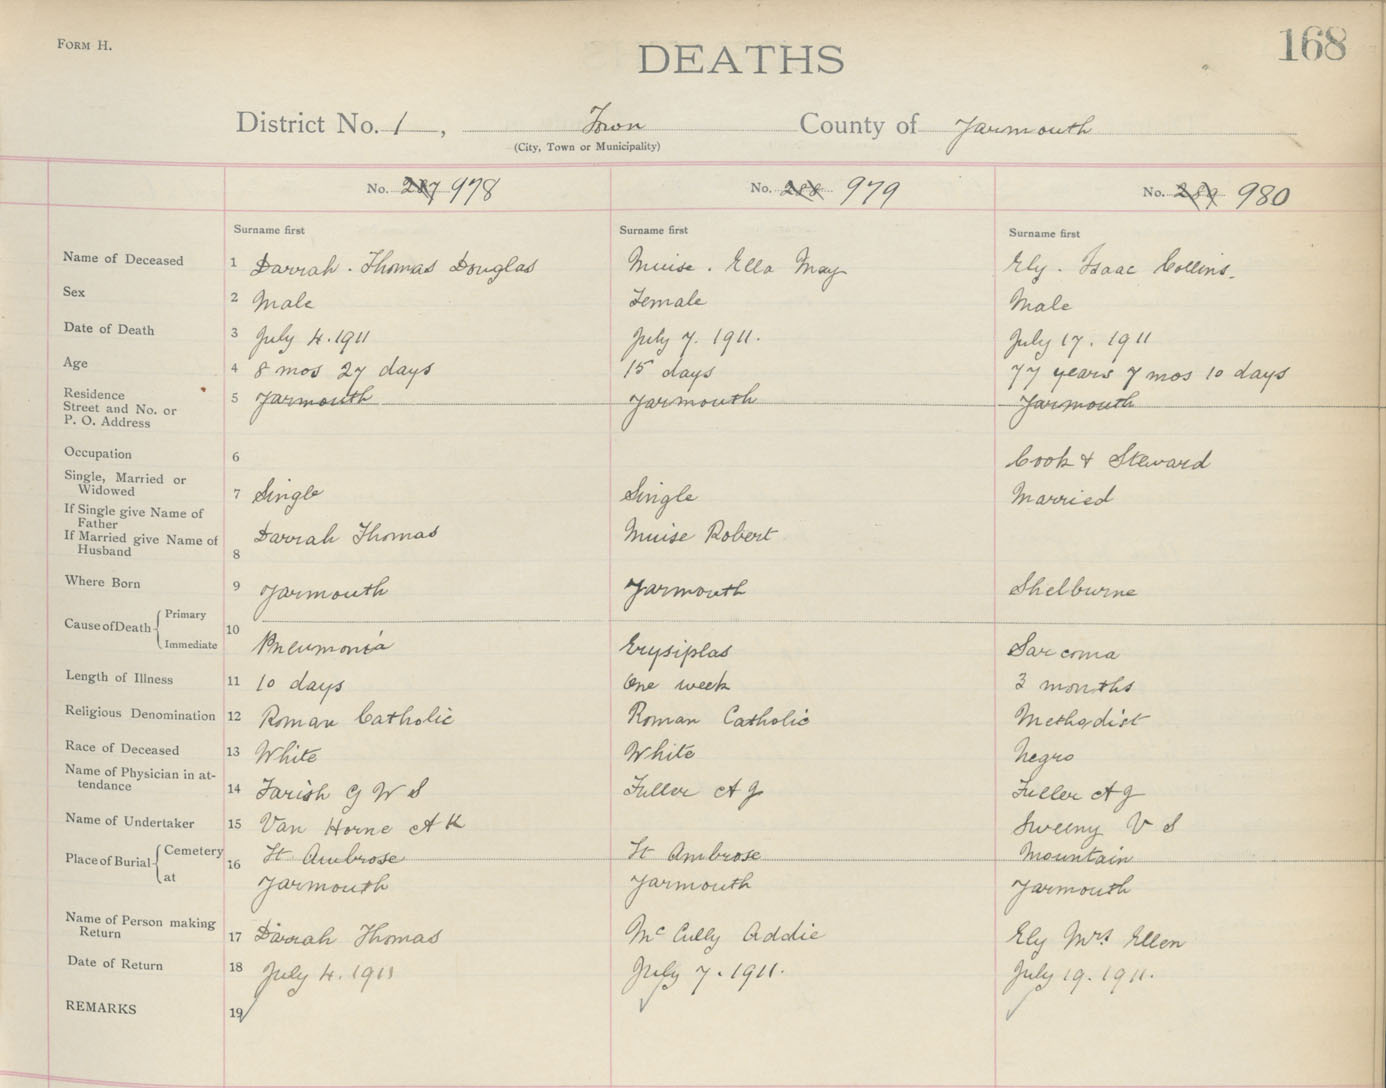 FORM H.
168
DEATHS
District No. 1, Town County of Yarmouth
(City, Town or Municipality)
No. 287 978 No. 288 979 No. 289 980
Surname first Surname first Surname first
Name of Deceased 1 Darrah. Thomas Douglas Muise. Ella May Ely. Isaac Collins.
Sex 2 Male Female Male
Date of Death 3 July 4. 1911 July 7. 1911. July 17. 1911
Age 4 8 mos 27 days 15 days 77 years 7 mos 10 days
Residence
Street and No. or 5 Yarmouth Yarmouth Yarmouth
P. O. Address
Occupation 6 Cook & Steward
Single, Married or
Widowed 7 Single Single Married
If Single give Name of
Father
If Married give Name of Darrah Thomas Muise Robert
Husband 8
Where Born 9 Yarmouth Yarmouth Shelburne
Cause of Death { Primary
10
Immediate Pneumonia Erysiplas Sarcoma
Length of Illness 11 10 days One week 3 months
Religious Denomination 12 Roman Catholic Roman Catholic Methodist
Race of Deceased 13 White White Negro
Name of Physician in at-
tendance 14 Farish G W S Fuller A J Fuller A J
Name of Undertaker 15 Van Horne A K Sweeny V S
Place of Burial { Cemetery 16 St Ambrose St Ambrose Mountain
at Yarmouth Yarmouth Yarmouth
Name of Person making
Return 17 Darrah Thomas McCully Addie Ely Mrs Ellen
Date of Return 18 July 4. 1911 July 7. 1911. July 19. 1911.
REMARKS 19